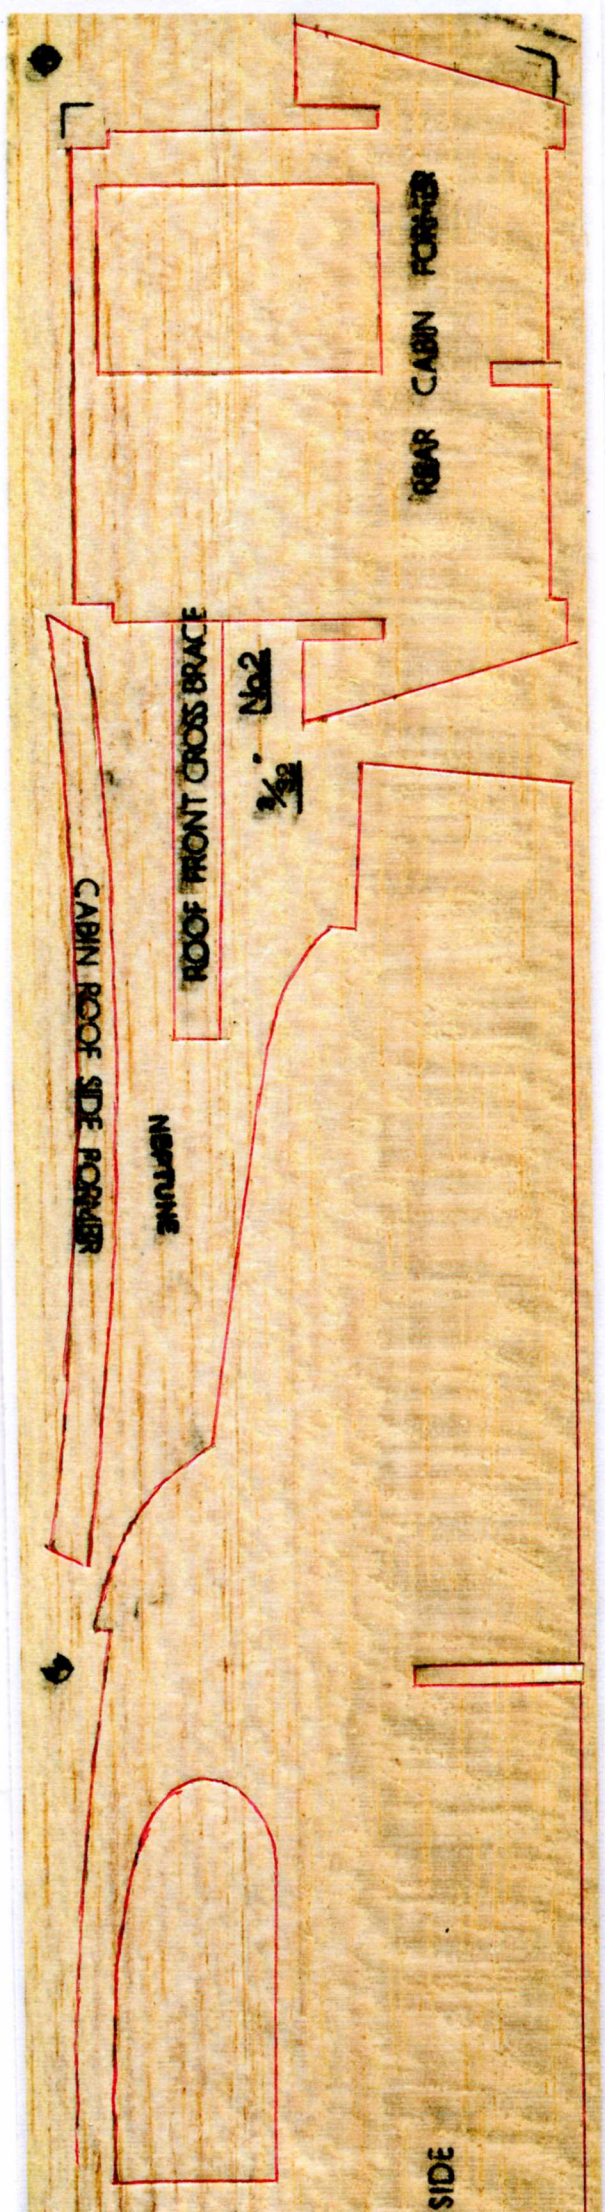 REAR CABIN FORMER
ROOF FRONT CROSS BRACE
No2
3/32"
CABIN ROOF SIDE FORMER
NEPTUNE
SIDE